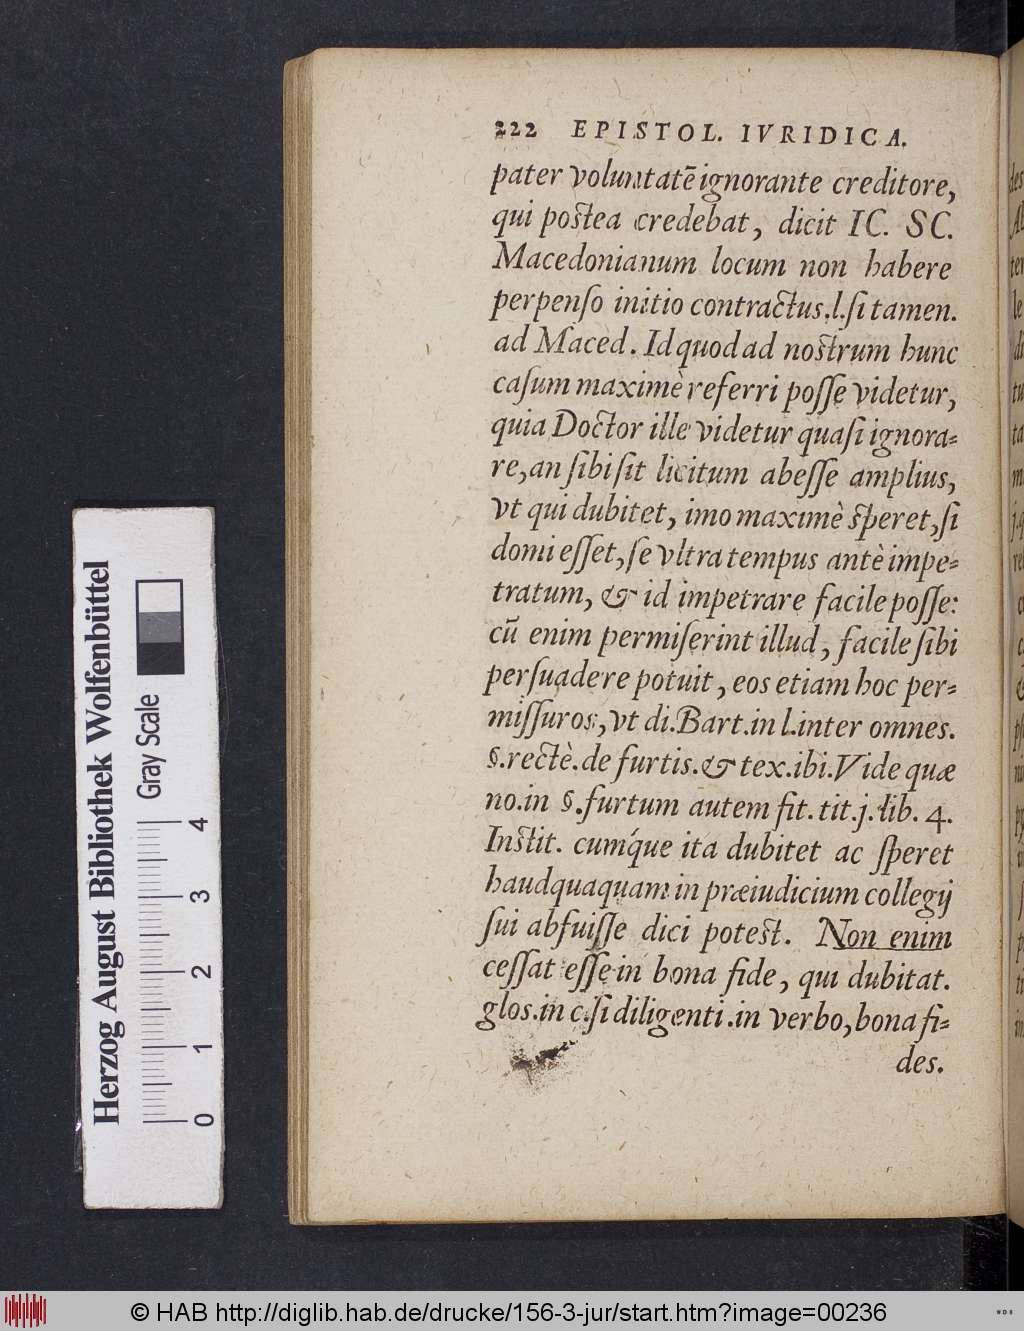 222 EPISTOL. IVRIDICA.
pater voluntatē ignorante creditore,
qui postea credebat, dicit IC. SC.
Macedonianum locum non habere
perpenſo initio contractus.l.ſi tamen.
ad Maced. Id quod ad nostrum hunc
caſum maximè referri poſſe videtur,
quia Doctor ille videtur quaſi ignora-
re, an ſibi ſit licitum abeſſe amplius,
vt qui dubitet, imo maximè ſperet, ſi
domi eſſet, ſe vltra tempus antè impe-
tratum, & id impetrare facile poſſe:
cū enim permiſerint illud, facile ſibi
perſuadere potuit, eos etiam hoc per-
miſſuros, vt di. Bart. in l. inter omnes.
§. rectè. de furtis. & tex. ibi. Vide quæ
no. in §. furtum autem fit. tit. j. lib. 4.
Instit. cumq́ue ita dubitet ac ſperet
haudquaquam in præiudicium collegij
ſui abfuiſſe dici potest. Non enim
ceſſat eſſe in bona fide, qui dubitat.
glos. in c. ſi diligenti. in verbo, bona fi-
des.
Herzog August Bibliothek Wolfenbüttel
Gray Scale
0 1 2 3 4
© HAB http://diglib.hab.de/drucke/156-3-jur/start.htm?image=00236